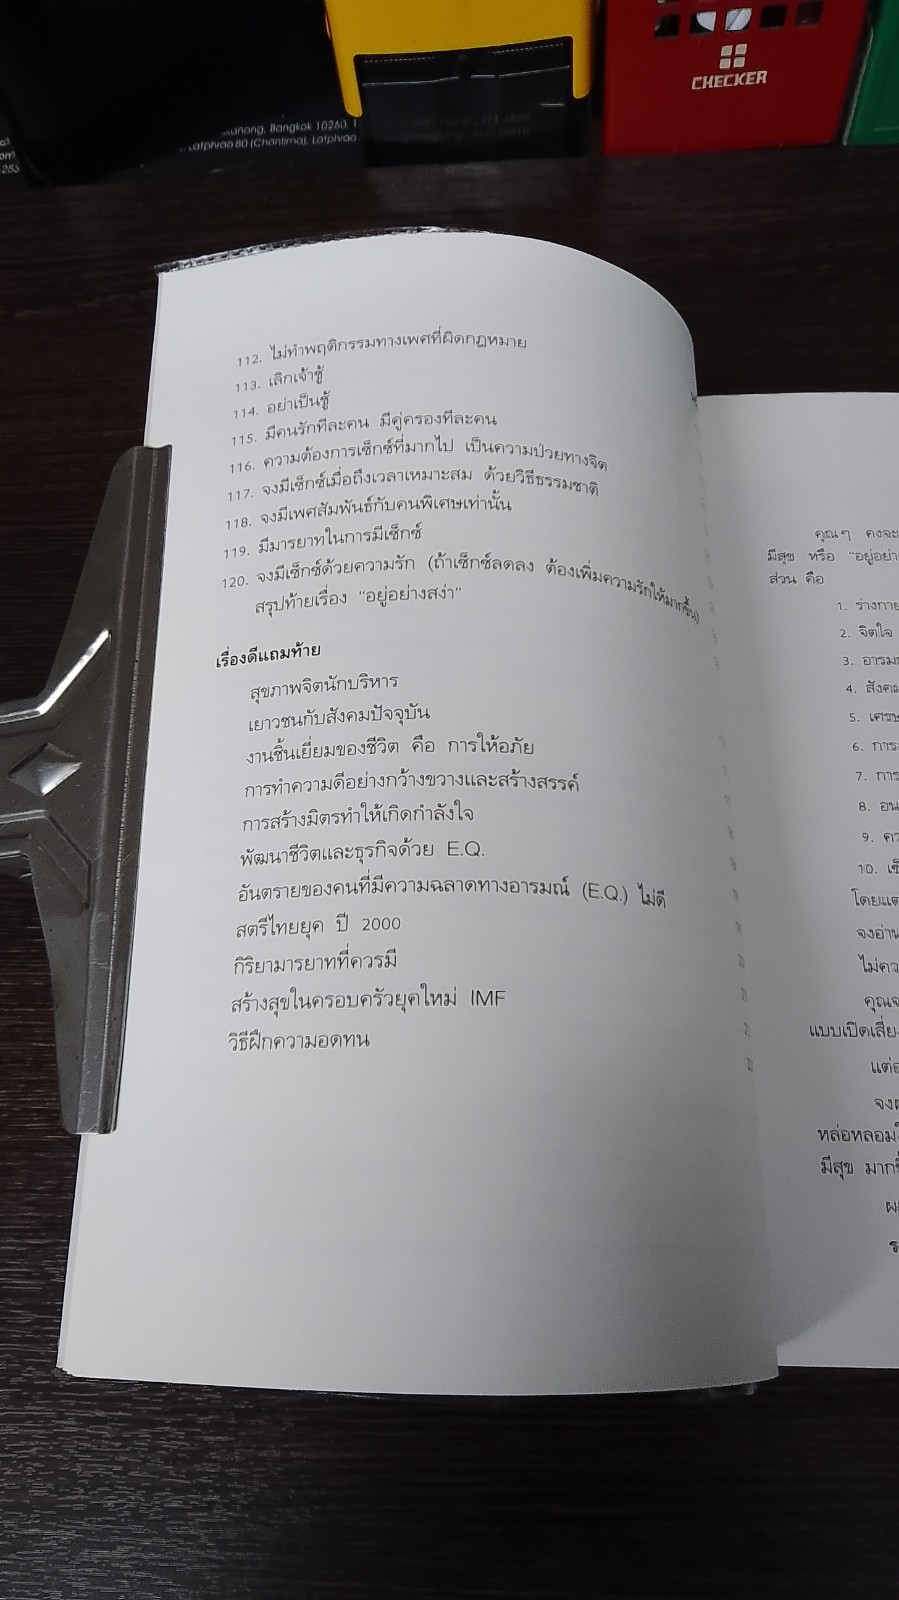 CHECKER
Bangkok 10260,
Latphrao 80 (Chantima), Latphrao
112. ไม่ทำพฤติกรรมทางเพศที่ผิดกฎหมาย
113. เลิกเจ้าชู้
114. อย่าเป็นชู้
115. มีคนรักทีละคน มีคู่ครองทีละคน
116. ความต้องการเซ็กซ์ที่มากไป เป็นความป่วยทางจิต
117. จงมีเซ็กซ์เมื่อถึงเวลาเหมาะสม ด้วยวิธีธรรมชาติ
118. จงมีเพศสัมพันธ์กับคนพิเศษเท่านั้น
119. มีมารยาทในการมีเซ็กซ์
120. จงมีเซ็กซ์ด้วยความรัก (ถ้าเซ็กซ์ลดลง ต้องเพิ่มความรักให้มากขึ้น)
สรุปท้ายเรื่อง "อยู่อย่างสง่า"
เรื่องดีแถมท้าย
สุขภาพจิตนักบริหาร
เยาวชนกับสังคมปัจจุบัน
งานชิ้นเยี่ยมของชีวิต คือ การให้อภัย
การทำความดีอย่างกว้างขวางและสร้างสรรค์
การสร้างมิตรทำให้เกิดกำลังใจ
พัฒนาชีวิตและธุรกิจด้วย E.Q.
อันตรายของคนที่มีความฉลาดทางอารมณ์ (E.Q.) ไม่ดี
สตรีไทยยุค ปี 2000
กิริยามารยาทที่ควรมี
สร้างสุขในครอบครัวยุคใหม่ IMF
วิธีฝึกความอดทน
คุณๆ คงจะ
มีสุข หรือ "อยู่อย่าง
ส่วน คือ
1. ร่างกาย
2. จิตใจ
3. อารม
4. สังคม
5. เศรษ
6. การ
7. การ
8. อน
9. คว
10. เซ็
โดยแต่
จงอ่าน
ไม่คว
คุณจ
แบบเปิดเสี่ย
แต่
จง
หล่อหลอม
มีสุข มาก